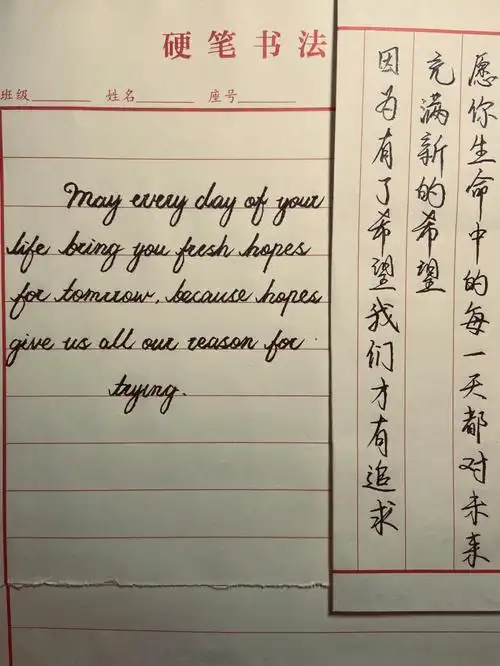 硬笔书法
班级 姓名 座号
May every day of your
life bring you fresh hopes
for tomrrow, because hopes
give us all our reason for
trying.
愿你生命中的每一天都对未来
充满新的希望
因为有了希望我们才有追求